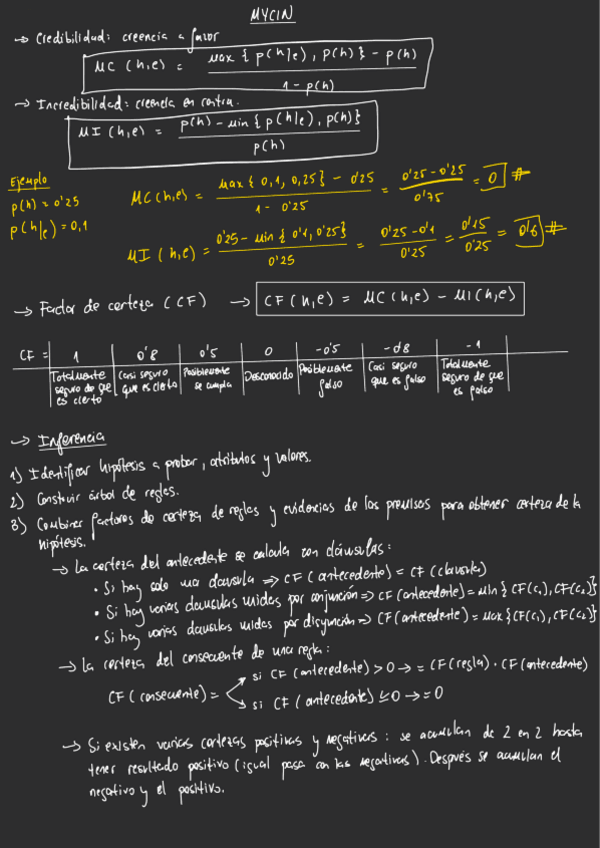 MYCIN
→ Credibilidad: creencia a favor
MC (h,e) = max { p(h|e), p(h)} - p(h) / 1 - p(h)
→ Incredibilidad: creencia en contra.
MI (h,e) = p(h) - min { p(h|e), p(h)} / p(h)
Ejemplo
p(h) = 0'25
p(h|e) = 0,1
MC(h,e) = max { 0,1, 0,25} - 0'25 / 1 - 0'25 = 0'25 - 0'25 / 0'75 = 0 #
MI (h,e) = 0'25 - min { 0'1, 0'25} / 0'25 = 0'25 - 0'1 / 0'25 = 0'15 / 0'25 = 0'6 #
→ Factor de certeza (CF) → CF(h,e) = MC(h,e) - MI(h,e)
CF = 1 0'8 0'5 0 -0'5 -0'8 -1
Totalmente seguro de que es cierto | Casi seguro que es cierto | Posiblemente se cumpla | Desconocido | Posiblemente falso | Casi seguro que es falso | Totalmente seguro de que es falso
→ Inferencia
1) Identificar hipótesis a probar, atributos y valores.
2) Construir árbol de reglas.
3) Combinar factores de certeza de reglas y evidencias de las premisas para obtener certeza de la
hipótesis.
→ La certeza del antecedente se calcula con cláusulas:
• Si hay solo una clausula => CF (antecedente) = CF (clausula)
• Si hay varias clausulas unidas por conjunción => CF(antecedente) = min { CF(c₁), CF(c₂)}
• Si hay varias clausulas unidas por disyunción => CF(antecedente) = max {CF(c₁), CF(c₂)}
→ La certeza del consecuente de una regla:
si CF (antecedente) > 0 → = CF(regla) · CF(antecedente)
CF (consecuente) =
si CF (antecedente) ≤ 0 → = 0
→ Si existen varias certezas positivas y negativas: se acumulan de 2 en 2 hasta
tener resultado positivo (igual pasa con las negativas). Después se acumulan el
negativo y el positivo.